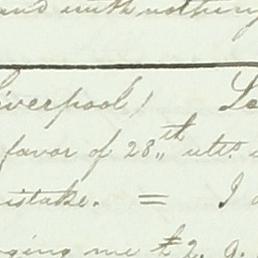 and with nothing
Liverpool /
favor of 28,,th ulto.
istake. = I
ging me £2. 9.